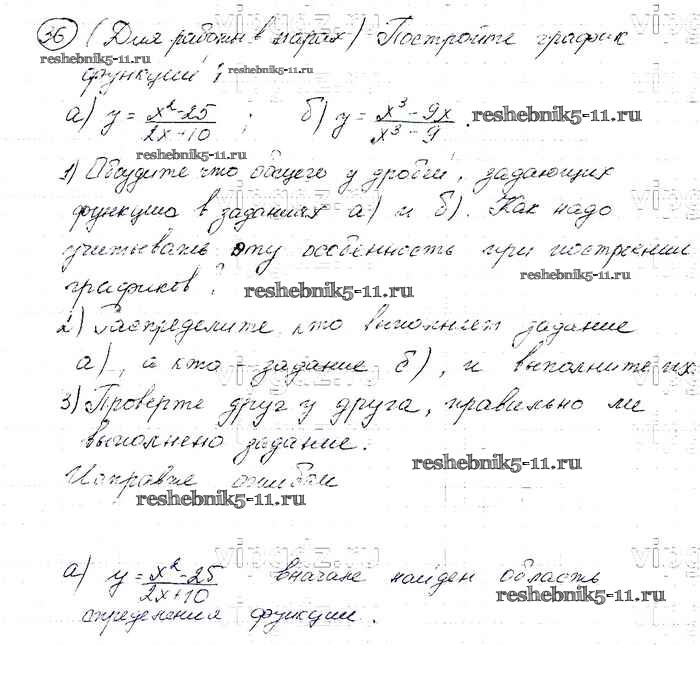 36 (Для работы в парах) Постройте график
reshebnik5-11.ru
функции:
reshebnik5-11.ru
а) y = x²-25 / 2x+10 ; б) y = x³-9x / x³-9 .
reshebnik5-11.ru
reshebnik5-11.ru
1) Обсудите что общего у дробей, задающих
функцию в заданиях а) и б). Как надо
учитывать эту особенность при построении
reshebnik5-11.ru
графиков?
reshebnik5-11.ru
2) Распределите, кто выполняет задание
а), а кто - задание б), и выполните их.
3) Проверте друг у друга, правильно ли
выполнено задание.
reshebnik5-11.ru
Исправте ошибки
reshebnik5-11.ru
а) y = x²-25 / 2x+10 - вначале найдем область
reshebnik5-11.ru
определения функции.